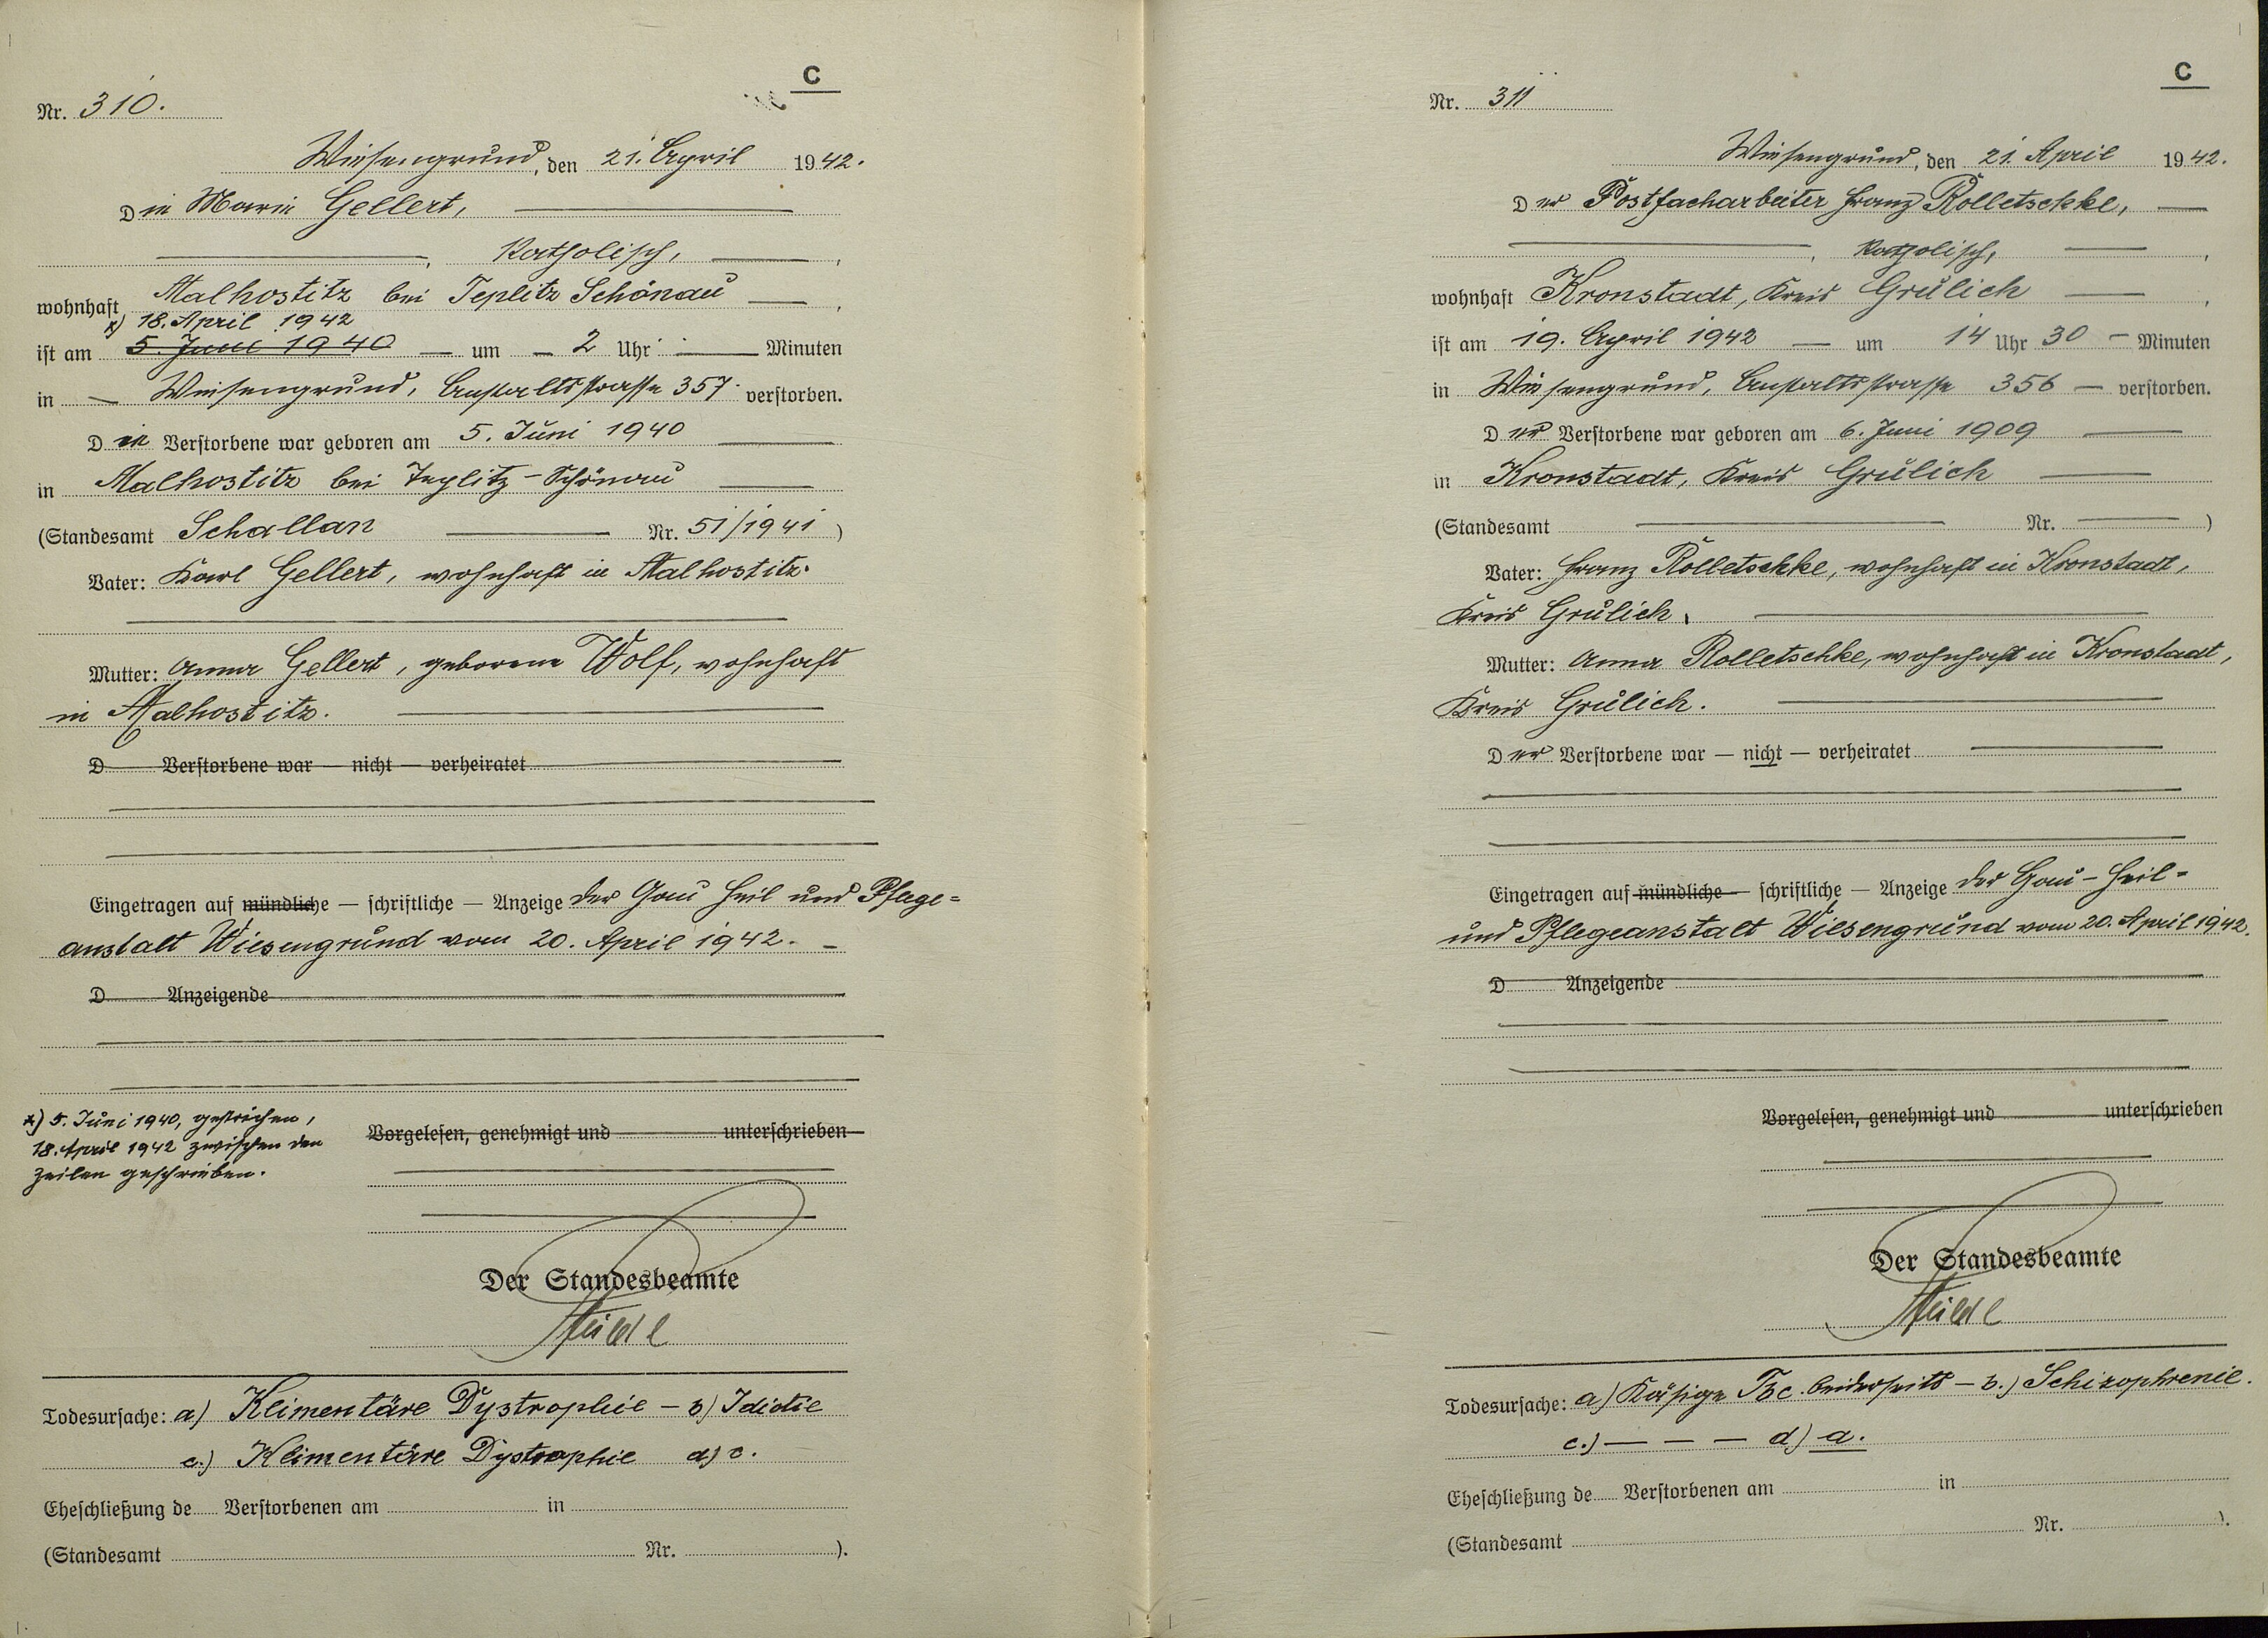 C
Nr. 310.
Wiesengrund, den 21. April 1942.
Die Marie Gellert,
katholisch,
wohnhaft Malhostitz bei Teplitz Schönau
x) 18. April 1942
ist am 5. Juni 1940 um 2 Uhr Minuten
in Wiesengrund, Anstaltsstrasse 357 verstorben.
Die Verstorbene war geboren am 5. Juni 1940
in Malhostitz bei Teplitz-Schönau
(Standesamt Schallan Nr. 51/1941)
Vater: Karl Gellert, wohnhaft in Malhostitz.
Mutter: Anna Gellert, geborene Wolf, wohnhaft
in Malhostitz.
D Verstorbene war — nicht — verheiratet
Eingetragen auf mündliche — schriftliche — Anzeige der Gau Heil und Pflege=
anstalt Wiesengrund vom 20. April 1942.
D Anzeigende
x) 5. Juni 1940, gestrichen,
18. April 1942 zwischen den
Zeilen geschrieben.
Vorgelesen, genehmigt und unterschrieben
Der Standesbeamte
Todesursache: a) Alimentäre Dystrophie - b) Idiotie
c.) Alimentäre Dystrophie d) c.
Eheschließung de Verstorbenen am in
(Standesamt Nr. ).
C
Nr. 311
Wiesengrund, den 21. April 1942.
Der Postfacharbeiter Franz Rolletschke,
katholisch,
wohnhaft Kronstadt, Kreis Grulich
ist am 19. April 1942 um 14 Uhr 30 Minuten
in Wiesengrund, Anstaltsstrasse 356 verstorben.
Der Verstorbene war geboren am 6. Juni 1909
in Kronstadt, Kreis Grulich
(Standesamt Nr. )
Vater: Franz Rolletschke, wohnhaft in Kronstadt,
Kreis Grulich.
Mutter: Anna Rolletschke, wohnhaft in Kronstadt,
Kreis Grulich.
Der Verstorbene war — nicht — verheiratet
Eingetragen auf mündliche — schriftliche — Anzeige der Gau-Heil=
und Pflegeanstalt Wiesengrund vom 20. April 1942.
D Anzeigende
Vorgelesen, genehmigt und unterschrieben
Der Standesbeamte
Todesursache: a) Käsige Tbc. beiderseits - b.) Schizophrenie.
c.) — — — d) a.
Eheschließung de Verstorbenen am in
(Standesamt Nr. ).